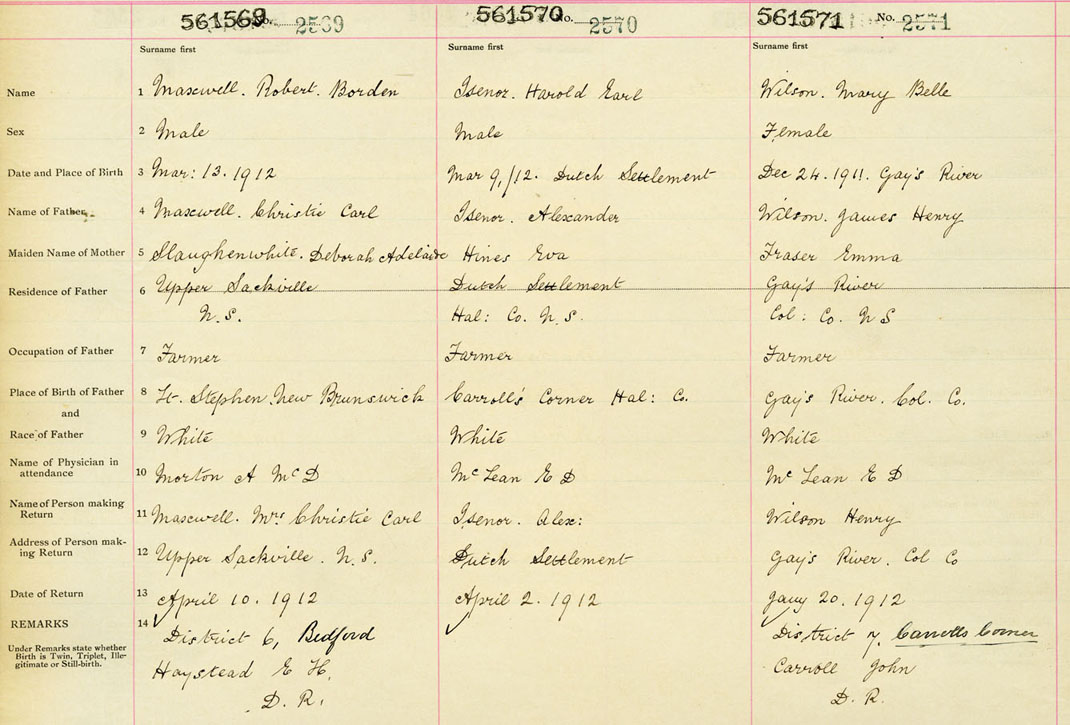 561569 No. 2569 561570 No. 2570 561571 No. 2571
Surname first Surname first Surname first
Name 1 Maxwell. Robert. Borden Isenor. Harold Earl Wilson. Mary Belle
Sex 2 Male Male Female
Date and Place of Birth 3 Mar: 13. 1912 Mar 9,/12. Dutch Settlement Dec 24. 1911. Gay's River
Name of Father 4 Maxwell. Christie Carl Isenor. Alexander Wilson. James Henry
Maiden Name of Mother 5 Slaughenwhite. Deborah Adelaide Hines Eva Fraser Emma
Residence of Father 6 Upper Sackville Dutch Settlement Gay's River
N.S. Hal: Co. N.S. Col: Co. N S
Occupation of Father 7 Farmer Farmer Farmer
Place of Birth of Father 8 St. Stephen. New Brunswick Carroll's Corner Hal: Co. Gay's River. Col. Co.
and
Race of Father 9 White White White
Name of Physician in
attendance 10 Morton A McD McLean E D McLean E D
Name of Person making
Return 11 Maxwell. Mrs Christie Carl Isenor. Alex: Wilson Henry
Address of Person mak-
ing Return 12 Upper Sackville. N.S. Dutch Settlement Gay's River. Col Co
Date of Return 13 April 10. 1912 April 2. 1912 Jany 20. 1912
REMARKS 14
Under Remarks state whether
Birth is Twin, Triplet, Ille-
gitimate or Still-birth.
District 6, Bedford District 7, Carrolls Corner
Haystead E H. Carroll John
D. R. D. R.